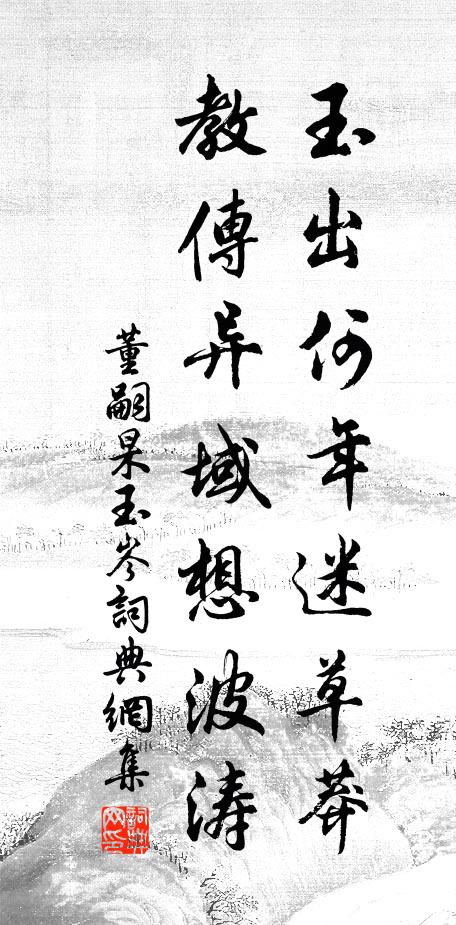 玉出何年迷草莽
教傳异域想波涛
董嗣杲玉岑詞典網集